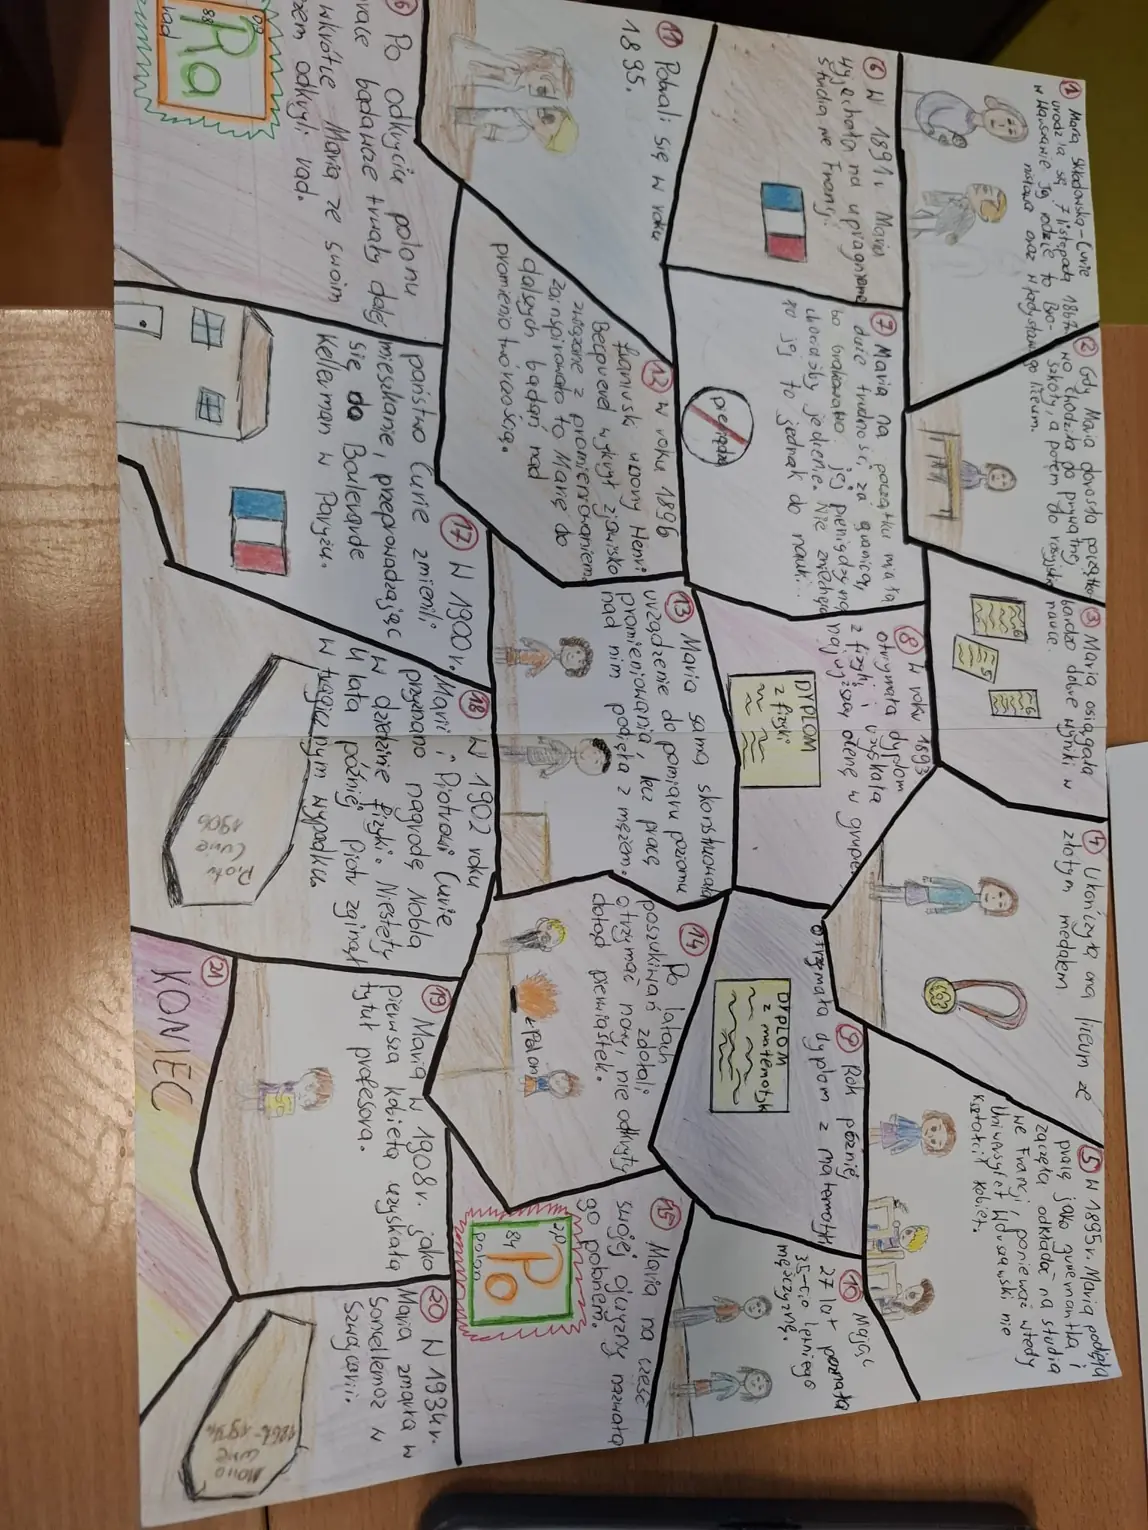 1 Maria Skłodowska-Curie
urodziła się 7 listopada 1867r.
w Warszawie jej rodzice to Bro-
nisława oraz Władysław
2 Gdy Maria dorosła początko-
wo chodziła do prywatnej
szkoły, a potem do rosyjskie-
go liceum.
3 Maria osiągała
bardzo dobre wyniki w
nauce.
4 Ukończyła ona liceum ze
złotym medalem.
5 W 1885r. Maria podjęła
pracę jako guwernantka i
zaczęła odkładać na studia
we Francji, ponieważ wtedy
Uniwersytet Warszawski nie
kształcił kobiet.
6 W 1891r. Maria
wyjechała na upragnione
studia we Francji.
7 Maria na początku miała
duże trudności za granicą,
bo brakowało jej pieniędzy na
choćby jedzenie. Nie zniechęca-
ło jej to jednak do nauki.
pieniądze
8 W roku 1893
otrzymała dyplom
z fizyki i uzyskała
najwyższą ocenę w grupie
DYPLOM
z fizyki
9 Rok później
otrzymała dyplom z matematyki
DYPLOM
z matematyki
10 Mając
27 lat poznała
35-cio letniego
mężczyznę.
11 Pobrali się w roku
1895.
12 W roku 1896
francuski uczony Henri
Becquerel wykrył zjawisko
związane z promieniowaniem
zainspirowało to Marię do
dalszych badań nad
promieniotwórczością.
13 Maria sama skonstruowała
urządzenie do pomiaru poziomu
promieniowania, lecz pracę
nad nim podjęła z mężem.
14 Po latach
poszukiwań zdołali
otrzymać nowy, nie odkryty
dotąd pierwiastek.
Polon
15 Maria na cześć
swojej ojczyzny nazwała
go polonem.
Po
84
polon
16 Po odkryciu polonu
prace badawcze trwały dalej
wkrótce Maria ze swoim
mężem odkryli rad.
Ra
88
rad
17 W 1900r.
państwo Curie zmienili
mieszkanie, przeprowadzając
się do Boulevarde
Kellerman w Paryżu.
18 W 1902 roku
Marii i Piotrowi Curie
przyznano nagrodę Nobla
w dziedzinie fizyki. Niestety
4 lata później Piotr zginął
w tragicznym wypadku.
Piotr
Curie
1906
19 Maria w 1908r. jako
pierwsza kobieta uzyskała
tytuł profesora.
20 W 1934r.
Maria zmarła w
Sancellemoz w
Szwajcarii.
Maria
Curie
1867-1934
21
KONIEC